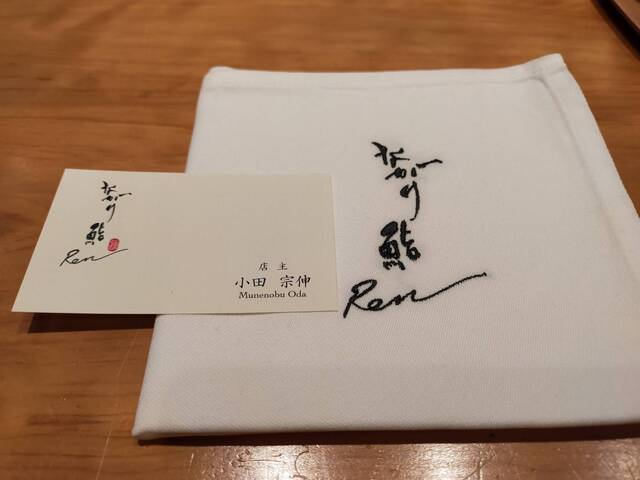 ながり
鮨
Ren
店主
小田 宗伸
Munenobu Oda
ながり
鮨
Ren